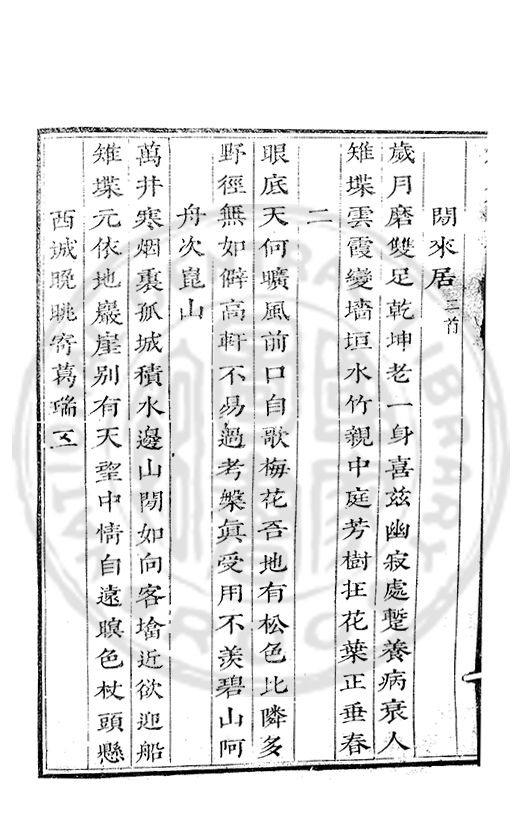 閒來居二首
歲月磨雙足乾坤老一身喜茲幽寂處蹔養病衰人
雉堞雲霞變墻垣水竹親中庭芳樹在花葉正垂春
二
眼底天何曠風前口自歌梅花吾地有松色比隣多
野徑無如僻高軒不易過考槃眞受用不羨碧山阿
舟次崑山
萬井寒烟裏孤城積水邊山閒如向客墖近欲迎船
雉堞元依地巖崖别有天望中情自遠暝色杖頭懸
西城晚眺寄葛瑞五